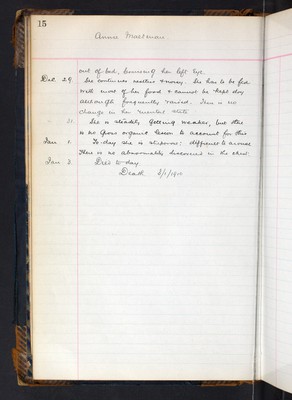 15
Annie
out of bed, bruising her left Eye.
Dec. 29. She continues restless & noisy. She has to be fed
with most of her food & cannot be kept dry
although frequently raised. There is no
change in her mental state.
" 31. She is steadily getting weaker, but there
is no gross organic lesion to account for this
Jan 1. To-day she is stuporose: difficult to arouse.
There is no abnormality discovered in the chest.
Jan 2. Died to-day.
Death 2/1/1910